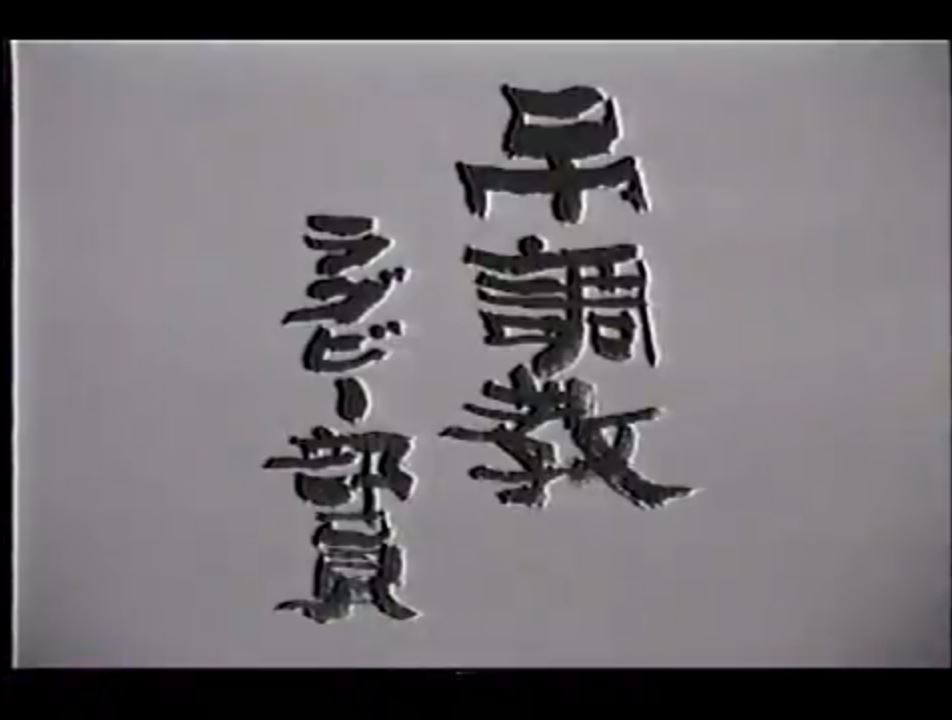 吊調教
ラグビー部員